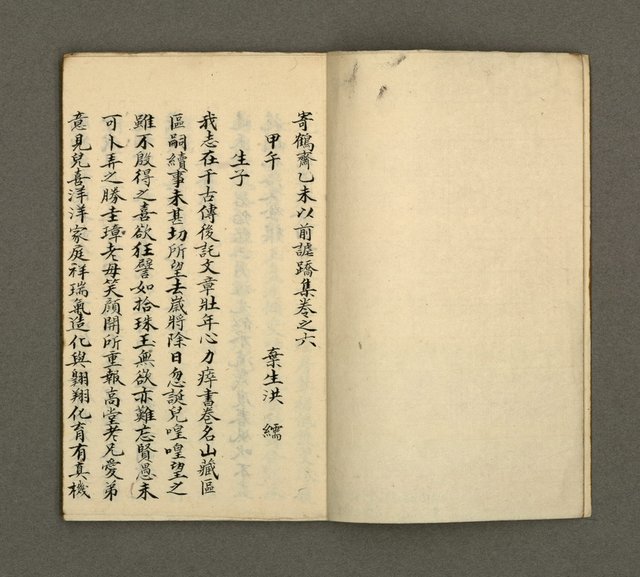 寄鶴齋乙未以前謔蹻集卷之六
甲午　棄生洪繻
生子
我志在千古傳後託文章壯年心力瘁書卷名山藏區
區嗣續事未甚切所望去歲將除日忽誕兒喤喤望之
雖不殷得之喜欲狂譬如拾珠玉無欲亦難忘賢愚未
可卜弄之勝圭璋老母笑顏開所重報高堂老兄愛弟
意見兒喜洋洋家庭祥瑞氣造化與翱翔化育有真機